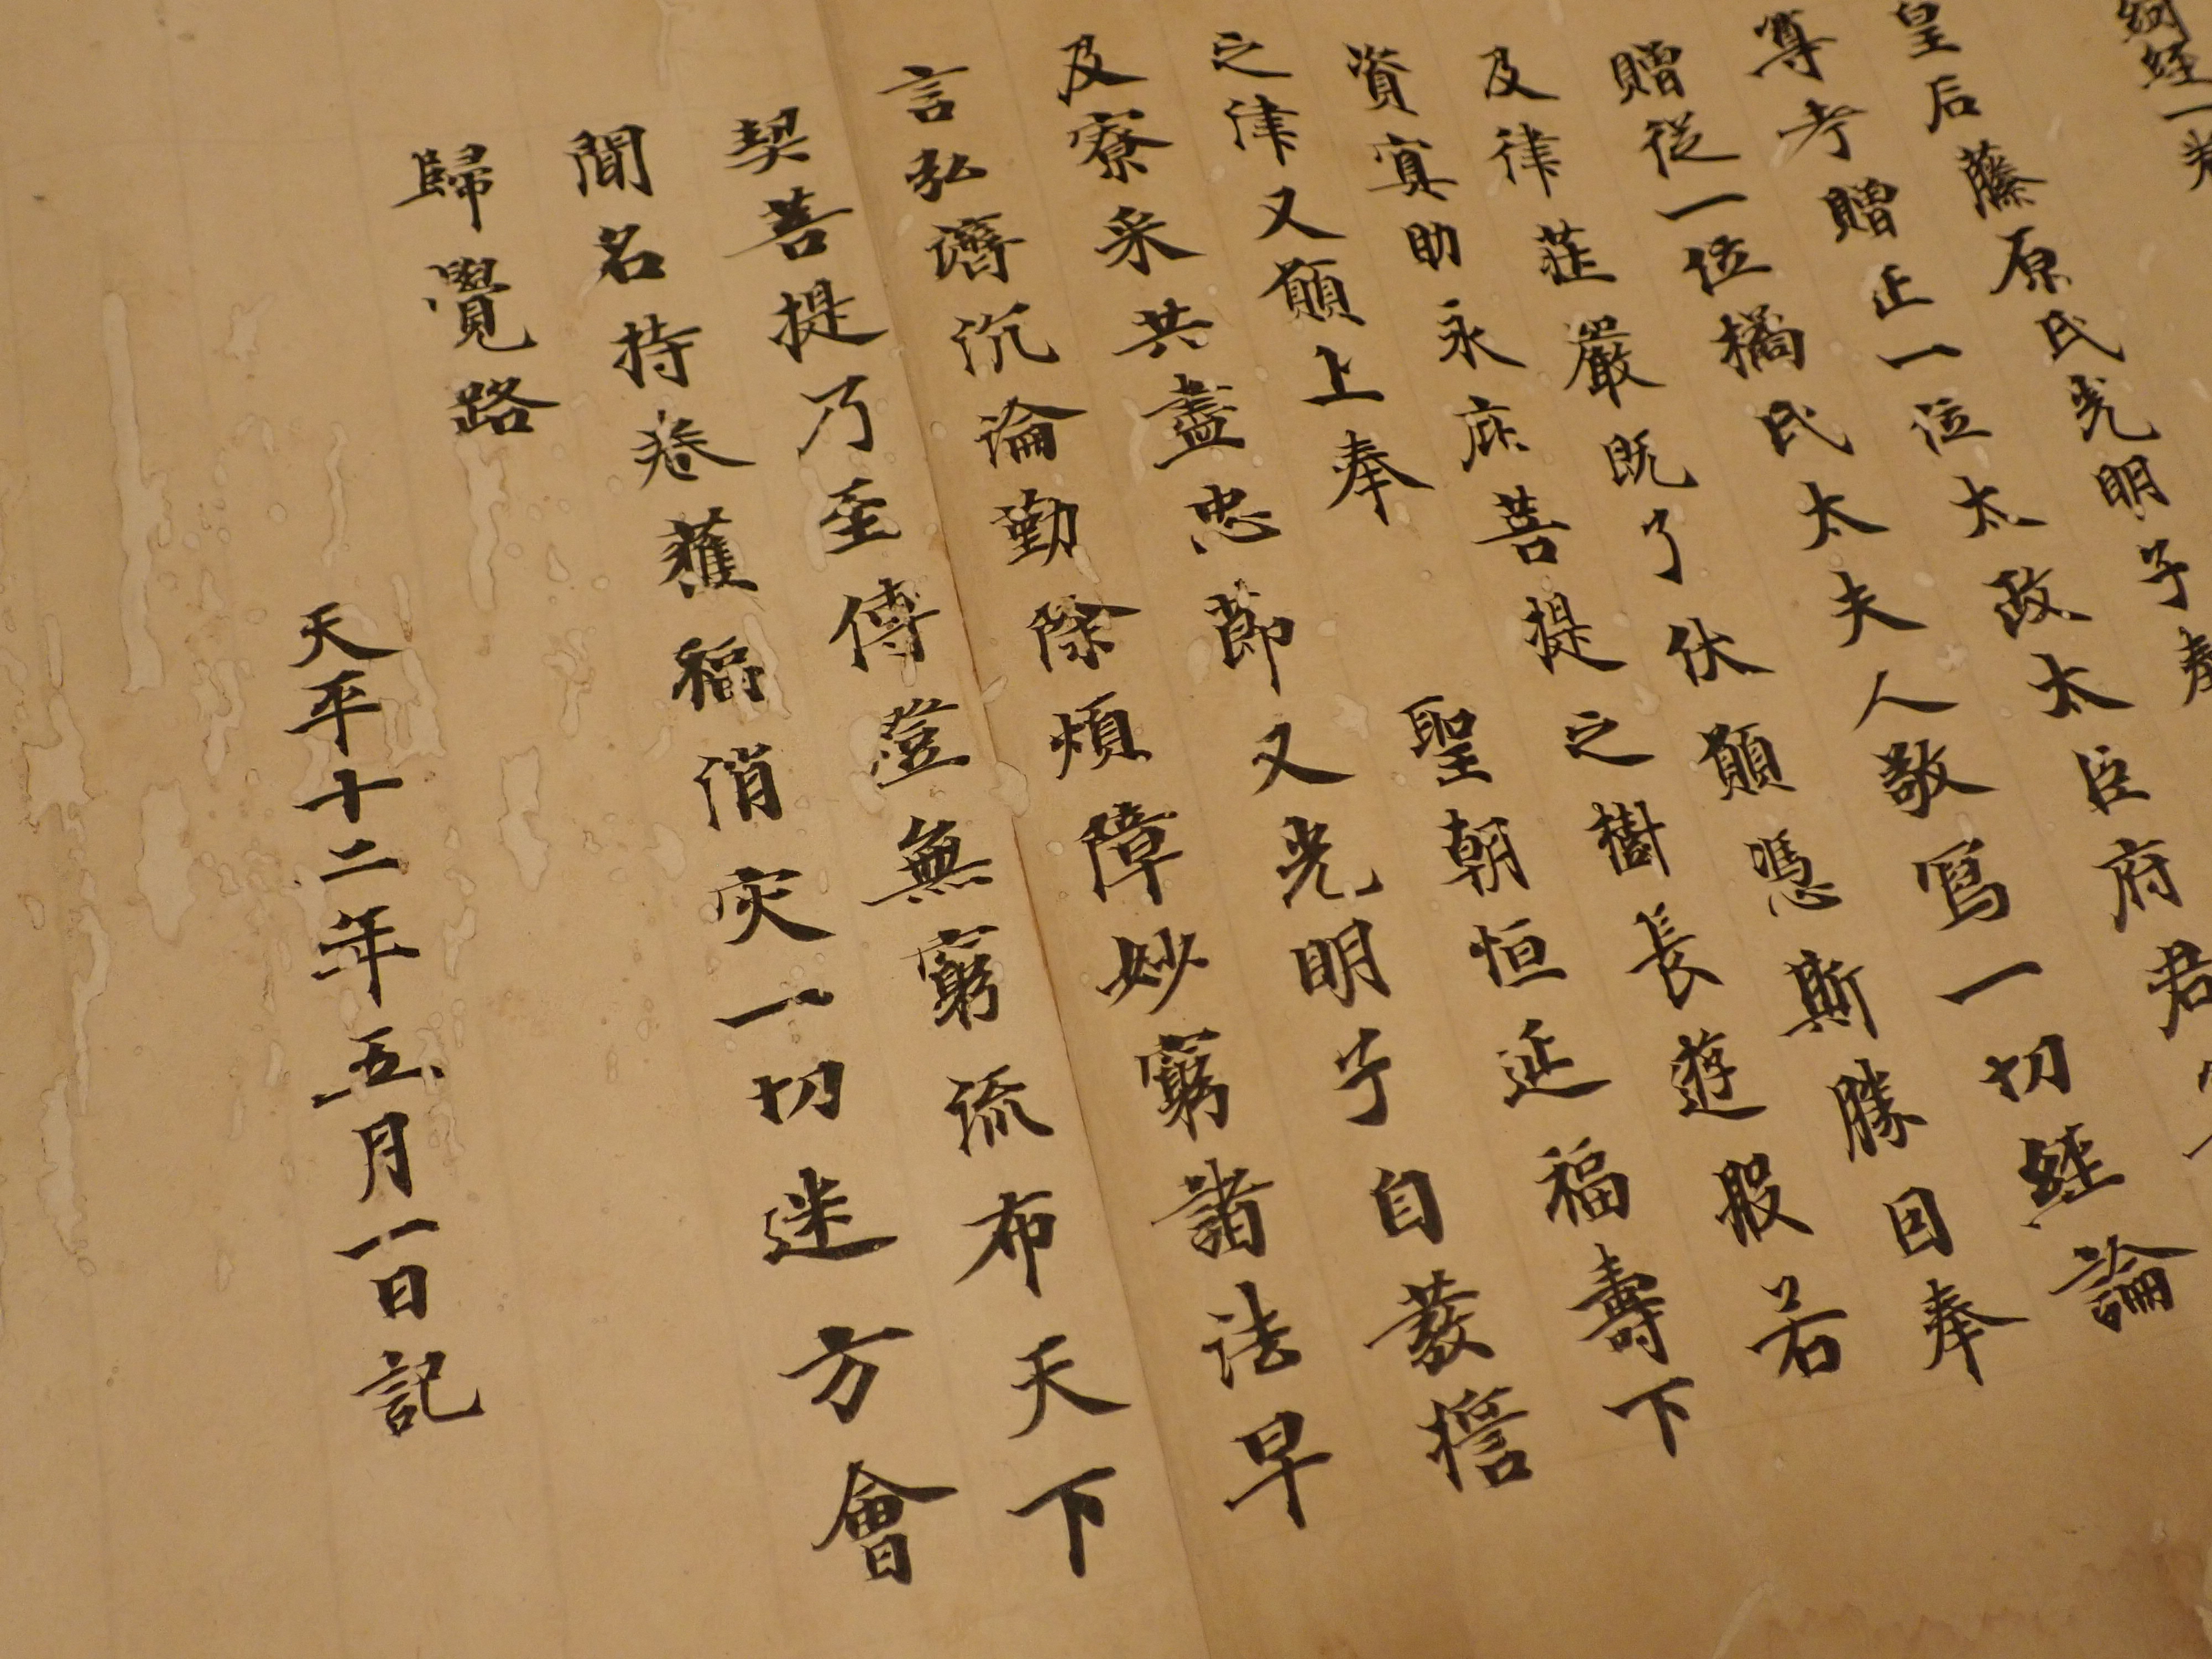 經一卷
皇后藤原氏光明子奉
尊考贈正一位太政太臣府君
贈從一位橘氏太夫人敬寫一切經論
及律莊嚴既了伏願憑斯勝因奉
資冥助永庇菩提之樹長遊般若
之津又願上奉　聖朝恒延福壽下
及寮采共盡忠節又光明子自發誓
言弘濟沉淪勤除煩障妙窮諸法早
契菩提乃至傳燈無窮流布天下
聞名持卷獲福消灾一切迷方會
歸覺路
天平十二年五月一日記